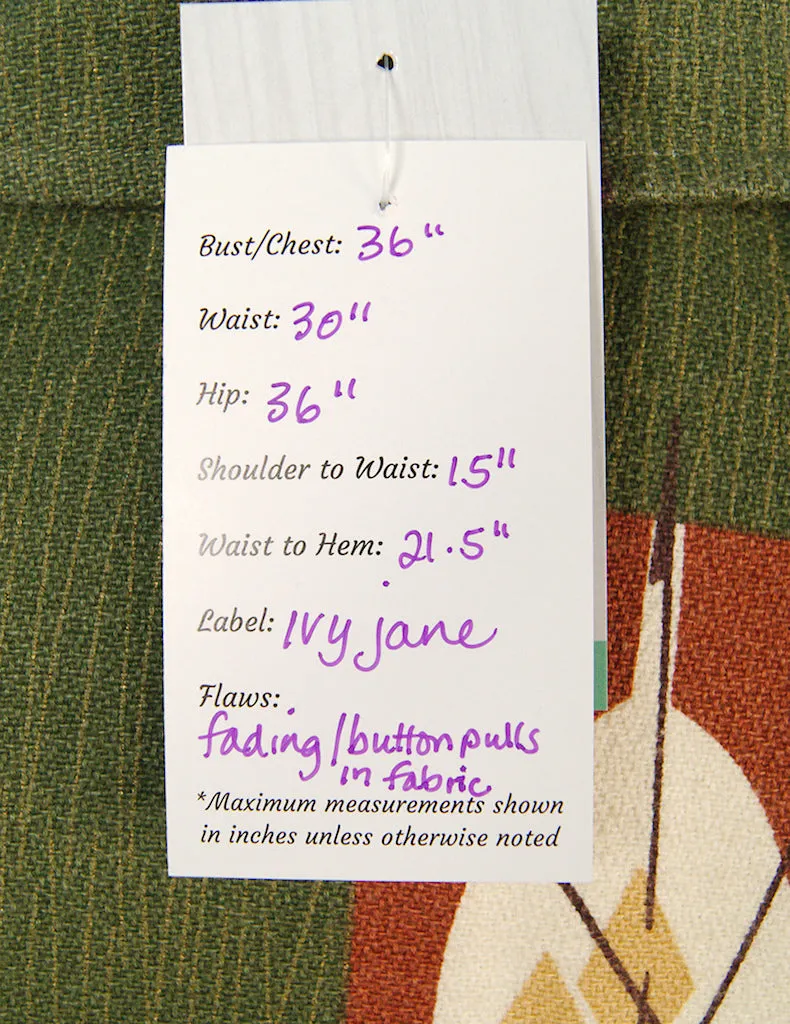 Bust/Chest: 36"
Waist: 30"
Hip: 36"
Shoulder to Waist: 15"
Waist to Hem: 21.5"
Label: Ivy jane
Flaws:
fading/button pulls
in fabric
*Maximum measurements shown
in inches unless otherwise noted